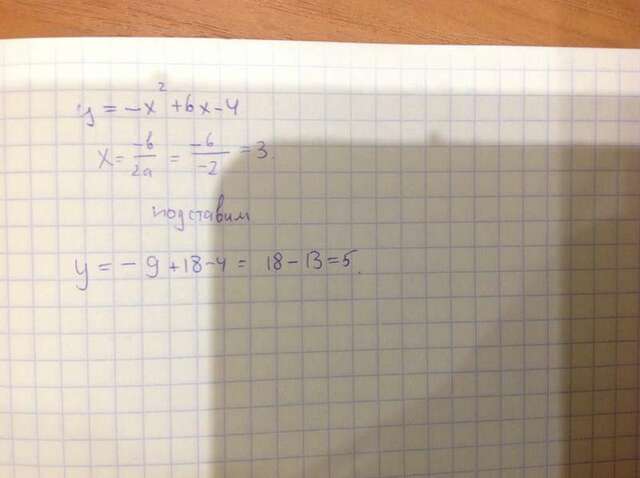 y = -x² + 6x - 4
x = -b/2a = -6/-2 = 3.
подставим
y = - 9 + 18 - 4 = 18 - 13 = 5.